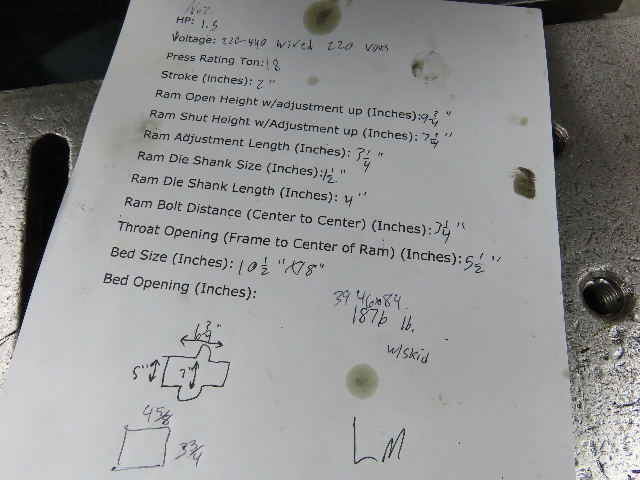 No2
HP: 1.5
Voltage: 220-440 wired 220 volts
Press Rating Ton: 18
Stroke (Inches): 2"
Ram Open Height w/adjustment up (Inches): 9 3/4"
Ram Shut Height w/Adjustment up (Inches): 7 3/4"
Ram Adjustment Length (Inches): 3 1/4"
Ram Die Shank Size (Inches): 1 1/2"
Ram Die Shank Length (Inches): 4"
Ram Bolt Distance (Center to Center) (Inches): 3 1/4"
Throat Opening (Frame to Center of Ram) (Inches): 5 1/2"
Bed Size (Inches): 10 1/2" X 18"
Bed Opening (Inches):
39 46x84
1876 lb.
w/skid
6 3/4"
5" 7"
4 5/8
3 3/4
LM